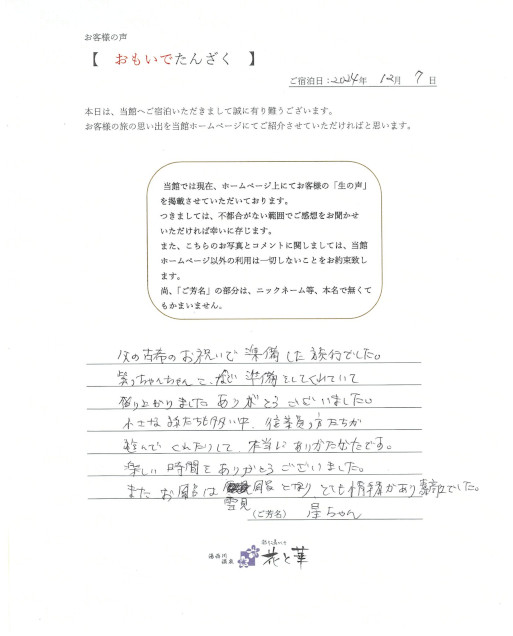 お客様の声
【 おもいでたんざく 】
ご宿泊日：2024年 12月 7日
本日は、当館へご宿泊いただきまして誠に有り難うございます。
お客様の旅の思い出を当館ホームページにてご紹介させていただければと思います。
当館では現在、ホームページ上にてお客様の「生の声」
を掲載させていただいております。
つきましては、不都合がない範囲でご感想をお聞かせ
いただければ幸いに存じます。
また、こちらのお写真とコメントに関しましては、当館
ホームページ以外の利用は一切しないことをお約束致し
ます。
尚、「ご芳名」の部分は、ニックネーム等、本名で無くて
もかまいません。
父の古希のお祝いで準備した旅行でした。
ちゃんちゃんこ、など準備をしてくれていて
盛り上がりましたありがとうございました。
小さな 子たちも多い中、従業員の方たちが
遊んで くれたりして、本当にありがたかったです。
楽しい 時間をありがとうございました。
また お風呂は 雪見風呂となり、とても情緒があり素敵でした。
(ご芳名) 星ちゃん
湯西川
温泉
彩り湯かしき
花と華